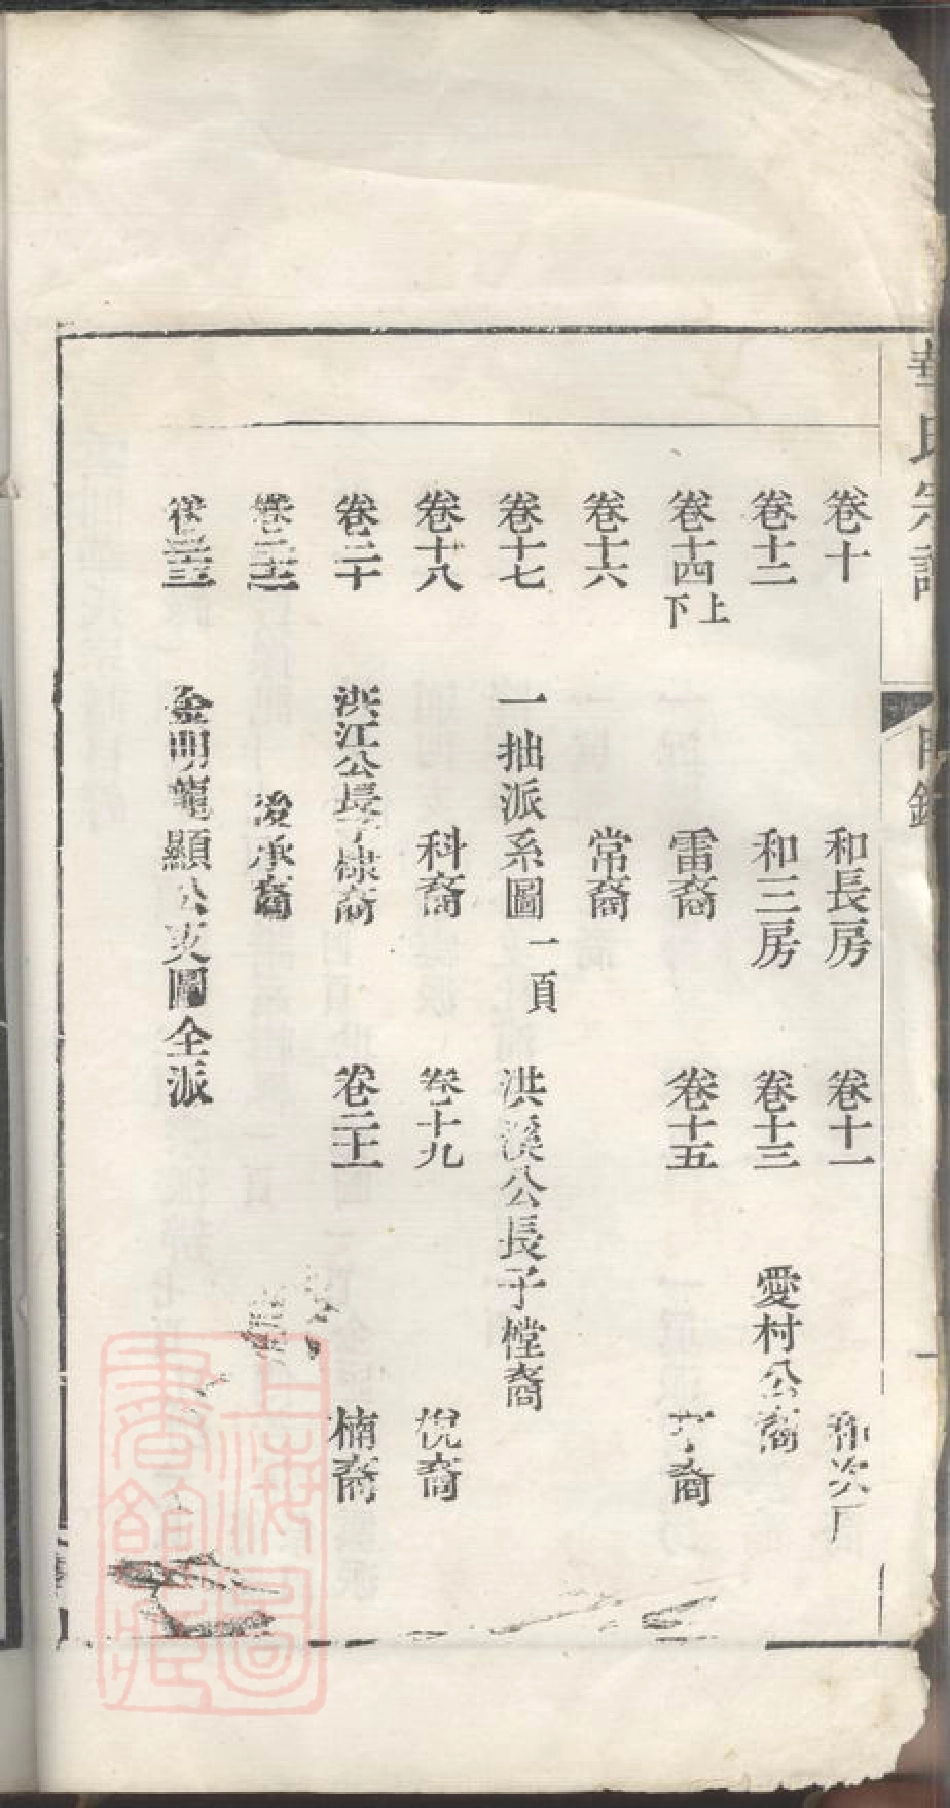 華氏宗譜 目錄 一
卷十 和長房 卷十一 和次
卷十二 和三房 卷十三 愛村公裔
卷十四上下 雷裔 卷十五 裔
卷十六 常裔
卷十七 一拙派系圖一頁 洪溪公長子樘裔
卷十八 科裔 卷十九 悅裔
卷二十 洪江公長子棣裔 卷二十一 楠裔
卷二十二 浚承裔
卷二十三 金明龍顯公 圖全派
上海圖書館藏